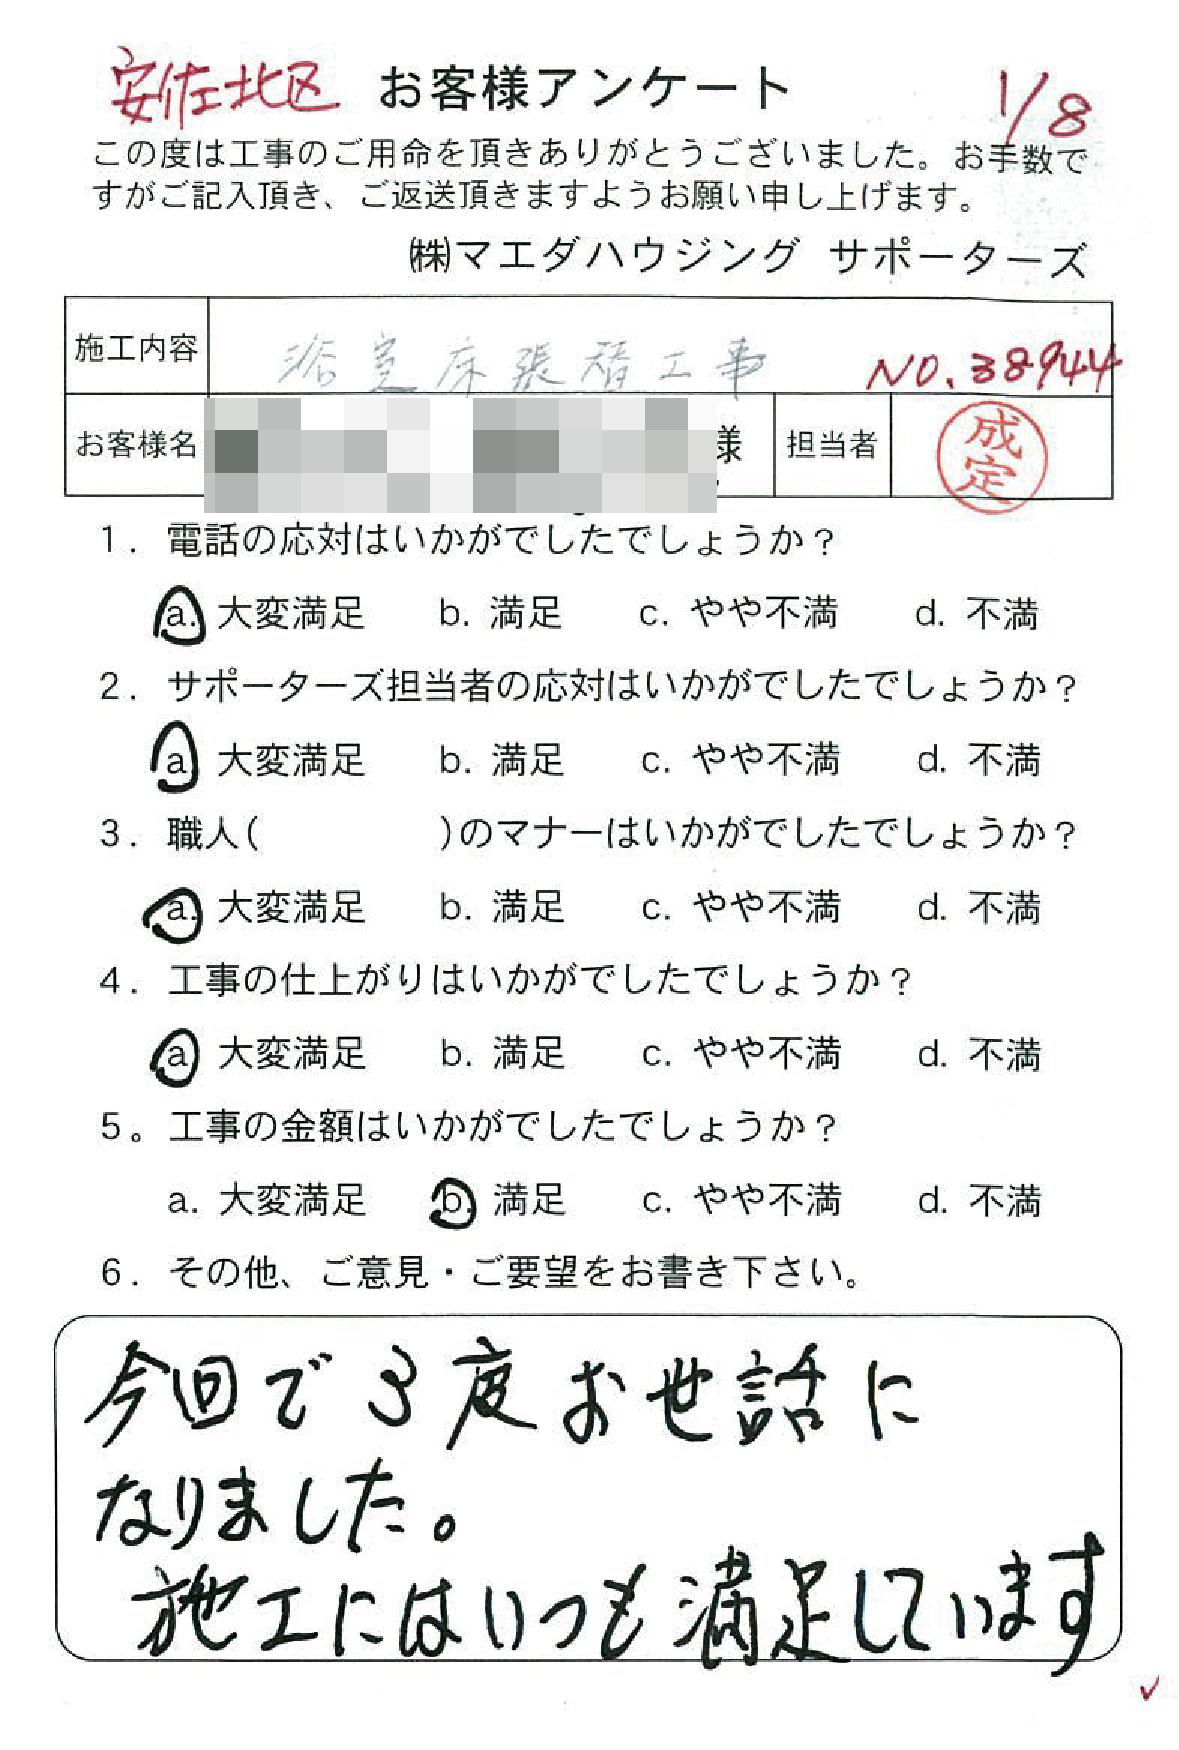 安佐北区 お客様アンケート 1/8
この度は工事のご用命を頂きありがとうございました。お手数で
すがご記入頂き、ご返送頂きますようお願い申し上げます。
㈱マエダハウジング サポーターズ
施工内容 浴室床張替工事 NO.38944
お客様名 様 担当者 成定
1. 電話の応対はいかがでしたでしょうか？
a. 大変満足 b. 満足 c. やや不満 d. 不満
2. サポーターズ担当者の応対はいかがでしたでしょうか？
a 大変満足 b. 満足 c. やや不満 d. 不満
3. 職人( )のマナーはいかがでしたでしょうか？
a. 大変満足 b. 満足 c. やや不満 d. 不満
4. 工事の仕上がりはいかがでしたでしょうか？
a 大変満足 b. 満足 c. やや不満 d. 不満
5。工事の金額はいかがでしたでしょうか？
a. 大変満足 b. 満足 c. やや不満 d. 不満
6. その他、ご意見・ご要望をお書き下さい。
今回で3度お世話に
なりました。
施工にはいつも満足しています